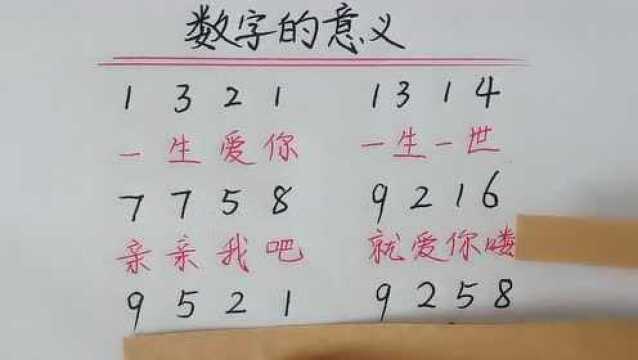 数字的意义
1 3 2 1 1 3 1 4
一生爱你 一生一世
7 7 5 8 9 2 1 6
亲亲我吧 就爱你喽
9 5 2 1 9 2 5 8